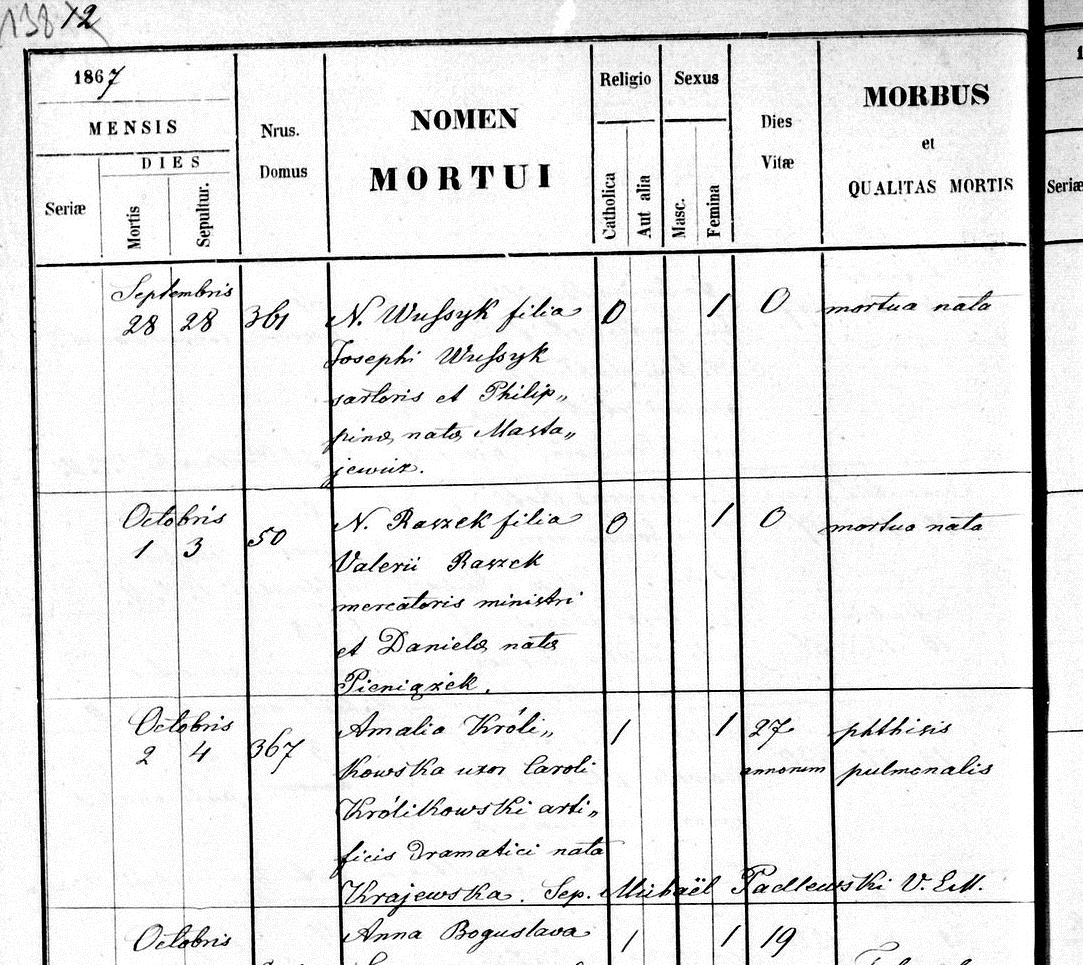 138 12
1867
MENSIS
DIES
Seriæ
Mortis
Sepultur.
Nrus.
Domus
NOMEN
MORTUI
Religio
Catholica
Aut alia
Sexus
Masc.
Femina
Dies
Vitæ
MORBUS
et
QUALITAS MORTIS
1
Seriæ
Septembris
28 28 361 N. Wußyk filia 0 1 0 mortua nata
Josephi Wußyk
sartoris et Philip„
pinæ natæ Masta„
jewicz.
Octobris
1 3 50 N. Raszek filia 0 1 0 mortua nata
Valerii Raszek
mercatoris ministri
et Danielæ natæ
Pieniążek.
Octobris
2 4 367 Amalia Króli„ 1 1 27 phthisis
kowska uxor Caroli annorum pulmonalis
Królikowski arti„
ficis dramatici nata
Krajewska. Sep. Michaël Padlewski V. E.M.
Octobris Anna Boguslava 1 1 19